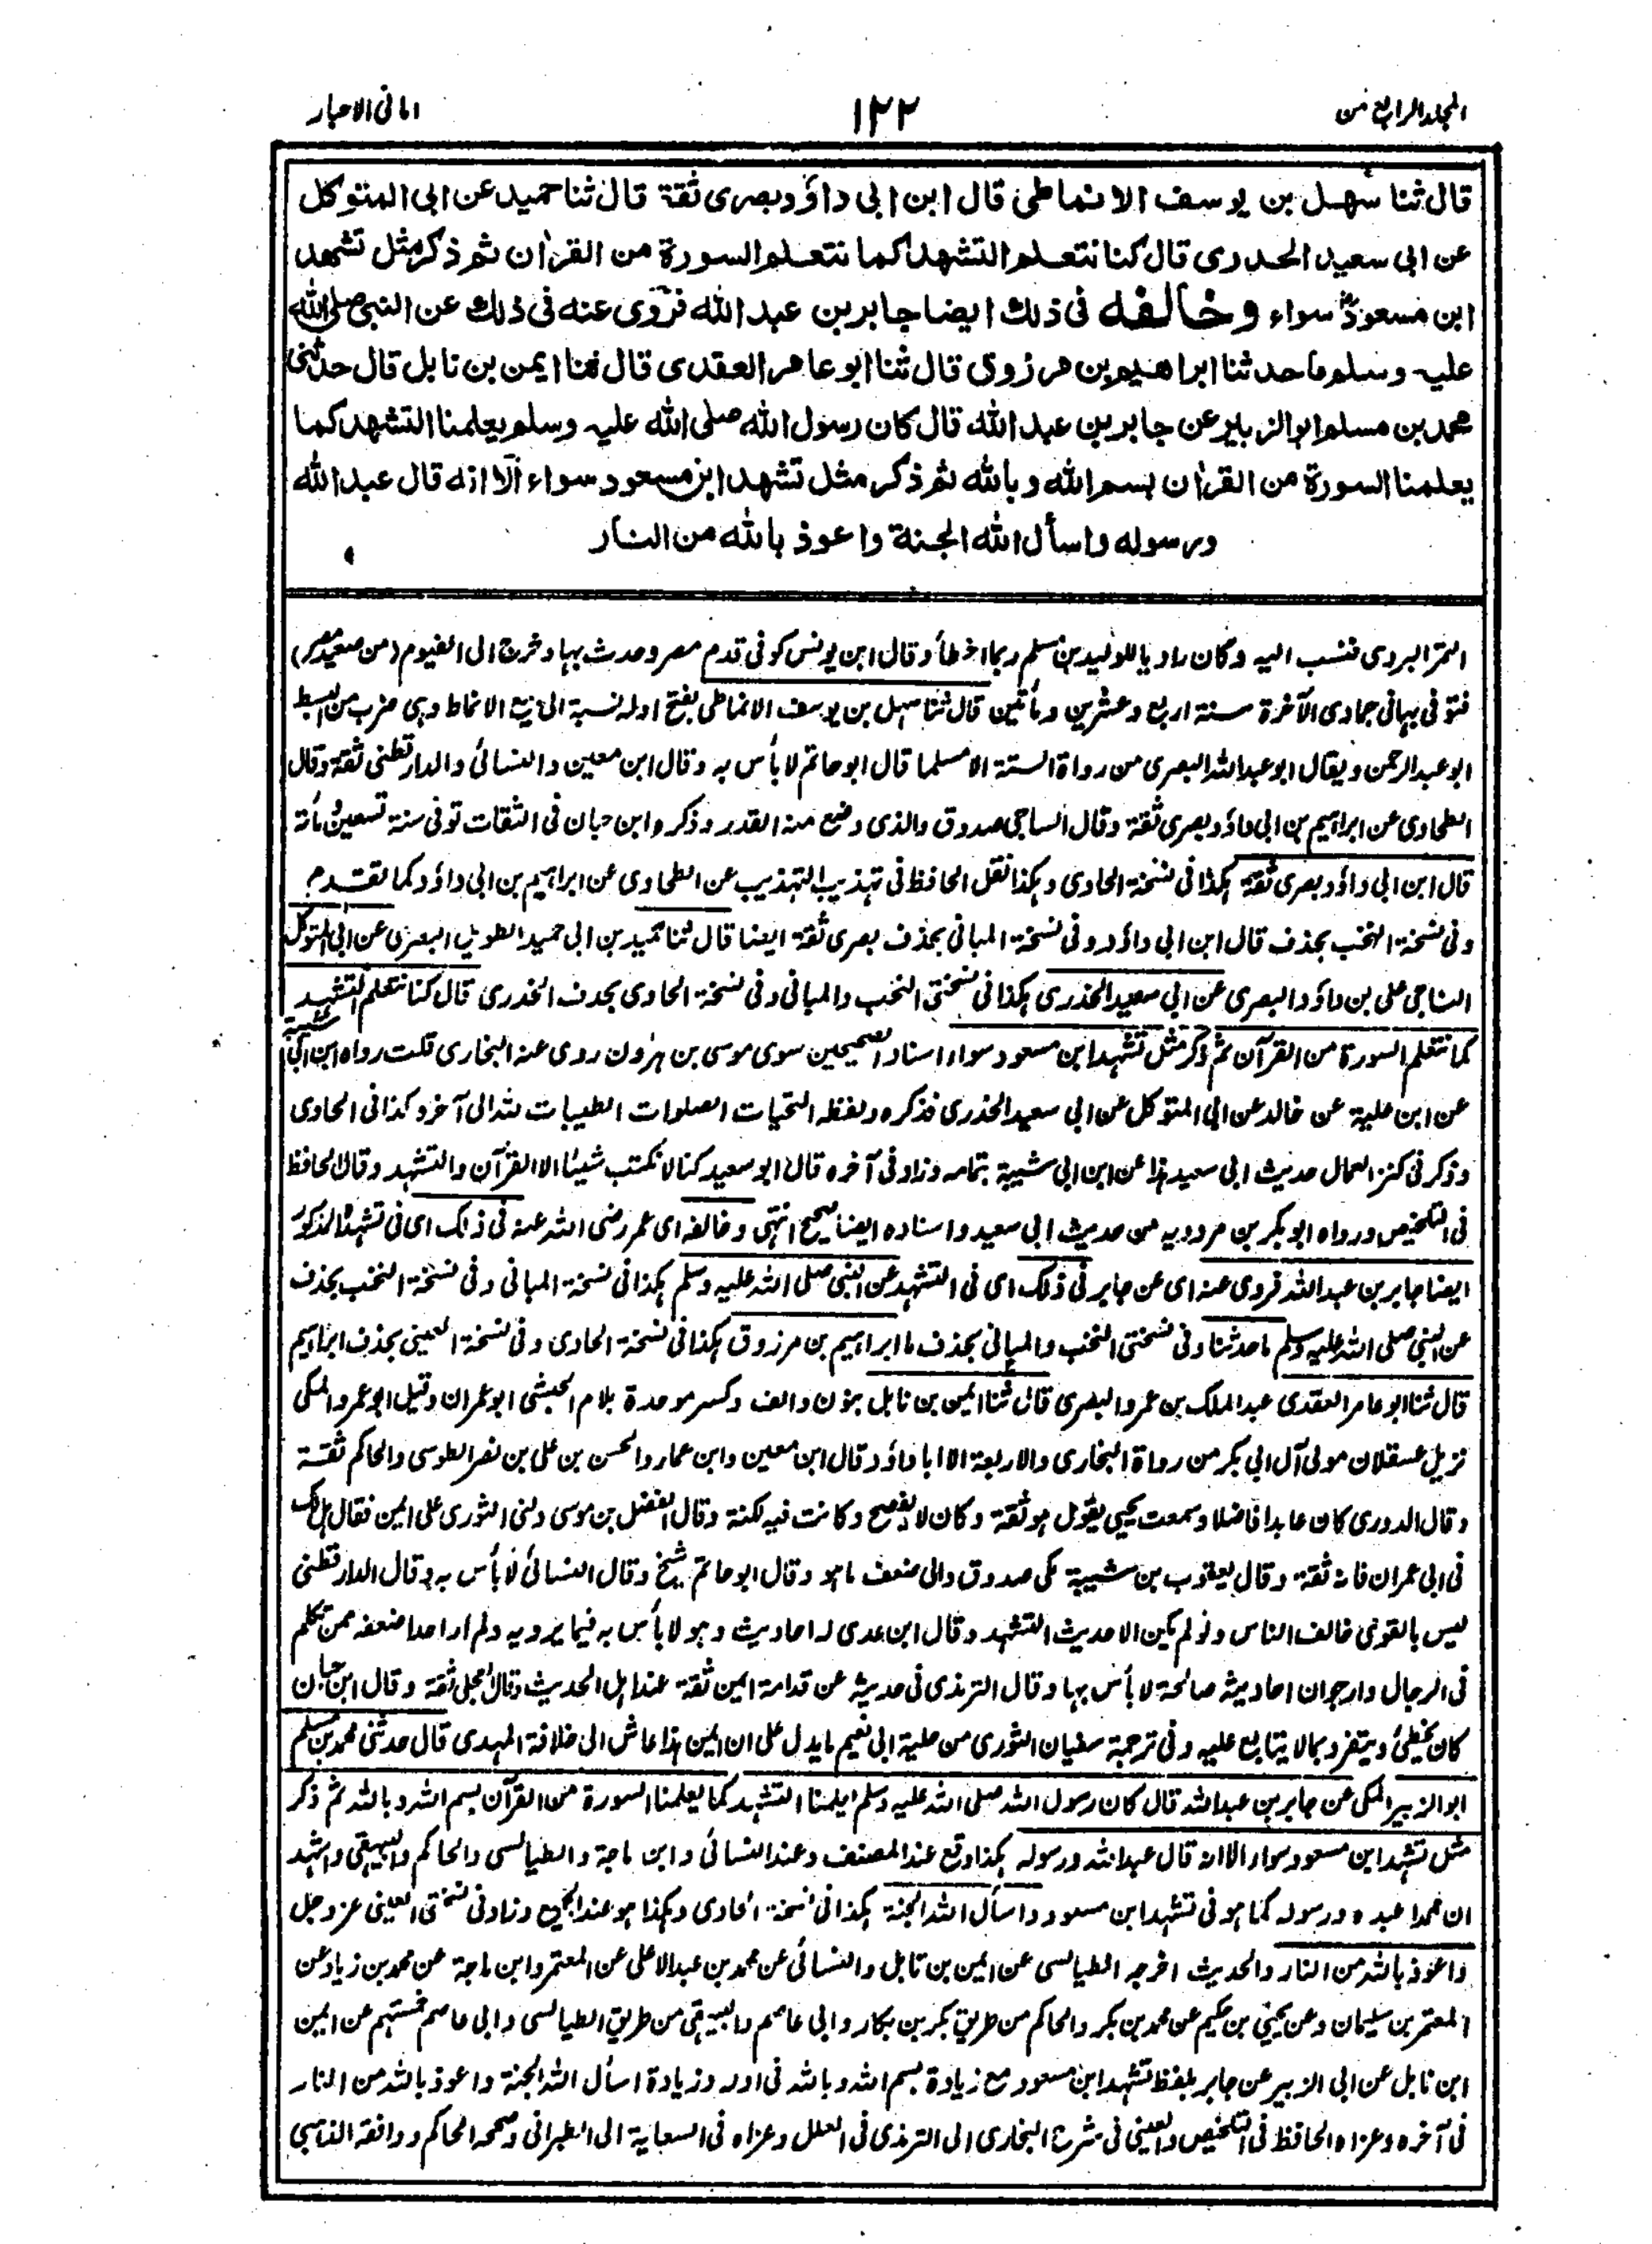 المجلد الرابع من
١٢٢
امانی الاحبار
قال ثنا سهل بن يوسف الانماطی قال ابن ابی داؤد بصری ثقة قال ثنا حمید عن ابی المتوکل
عن ابی سعید الخدری قال کنا نتعلم التشهد کما نتعلم السورة من القراٰن ثم ذکر مثل تشهد
ابن مسعودؓ سواء وخالفه فی ذلك ایضا جابر بن عبد الله فرَوی عنه فی ذلك عن النبی صلی الله
علیه وسلم ما حدثنا ابراهیم بن مرزوق قال ثنا ابو عامر العقدی قال ثنا ایمن بن نابل قال حدثنی
محمد بن مسلم ابو الزبیر عن جابر بن عبد الله قال کان رسول الله صلی الله علیه وسلم یعلمنا التشهد کما
یعلمنا السورة من القراٰن بسم الله وبالله ثم ذکر مثل تشهد ابن مسعود سواء اِلّا انه قال عبد الله
ورسوله واسأل الله الجنة واعوذ بالله من النار
التمر البردی فنسب الیه وکان راویا للولید بن مسلم ربما اخطأ وقال ابن یونس کوفی قدم مصر وحدث بها وخرج الی الفیوم (من صعید مصر)
فتوفی بها فی جمادی الآخرة سنة اربع وعشرین ومأتین قال ثنا سهل بن یوسف الانماطی بفتح اوله نسبة الی بیع الانماط وهی ضرب من البسط
ابو عبد الرحمن ویقال ابو عبد الله البصری من رواة الستة الا مسلما قال ابو حاتم لا بأس به وقال ابن معین والنسائی والدارقطنی ثقة وقال
الطحاوی عن ابراهیم بن ابی داؤد بصری ثقة وقال الساجی صدوق والذی وضع منه القدر وذکره ابن حبان فی الثقات توفی سنة تسعین ومأة
قال ابن ابی داؤد بصری ثقة هکذا فی نسخة الحاوی وهکذا نقل الحافظ فی تهذیب التهذیب عن الطحاوی عن ابراهیم بن ابی داؤد کما تقدم
وفی نسخة النخب بحذف قال ابن ابی داؤد وفی نسخة المبانی بحذف بصری ثقة ایضا قال ثنا حمید بن ابی حمید الطویل البصری عن ابی المتوکل
الناجی علی بن داؤد البصری عن ابی سعید الخدری هکذا فی نسختی النخب والمبانی وفی نسخة الحاوی بحذف الخدری قال کنا نتعلم التشهد
کما نتعلم السورة من القرآن ثم ذکر مثل تشهد ابن مسعود سواء اسناد الصحیحین سوی موسی بن هرٰون روی عنه البخاری قلت رواه ابن ابی شیبة
عن ابن علیة عن خالد عن ابی المتوکل عن ابی سعید الخدری فذکره ولفظه التحیات الصلوات الطیبات لله الی آخره کذا فی الحاوی
وذکر فی کنز العمال حدیث ابی سعید هذا عن ابن ابی شیبة بتمامه وزاد فی آخره قال ابو سعید کنا لا نکتب شیئا الا القرآن والتشهد وقال الحافظ
فی التلخیص ورواه ابو بکر بن مردویه من حدیث ابی سعید واسناده ایضا صحیح انتهی وخالفه ای عمر رضی الله عنه فی ذلک ای فی تشهده المذکور
ایضا جابر بن عبد الله فروی عنه ای عن جابر فی ذلک ای فی التشهد عن النبی صلی الله علیه وسلم هکذا فی نسخة المبانی وفی نسخة النخب بحذف
عن النبی صلی الله علیه وسلم ما حدثنا وفی نسختی النخب والمبانی بحذف ما ابراهیم بن مرزوق هکذا فی نسخة الحاوی وفی نسخة العینی بحذف ابراهیم
قال ثنا ابو عامر العقدی عبد الملک بن عمرو البصری قال ثنا ایمن بن نابل بنون والف وکسر موحدة بلام الحبشی ابو عمران وقیل ابو عمرو المکی
نزیل عسقلان مولی آل ابی بکر من رواة البخاری والاربعة الا ابا داؤد وقال ابن معین وابن عمار والحسن بن علی بن نصر الطوسی والحاکم ثقة
وقال الدوری کان عابدا فاضلا وسمعت یحیی یقول هو ثقة وکان لا یفصح وکانت فیه لکنة وقال الفضل بن موسی دلنی الثوری علی ایمن فقال هل لک
فی ابی عمران فانه ثقة وقال یعقوب بن شیبة مکی صدوق والی ضعف ما هو وقال ابو حاتم شیخ وقال النسائی لا بأس به وقال الدارقطنی
لیس بالقوی خالف الناس ولو لم یکن الا حدیث التشهد وقال ابن عدی له احادیث وهو لا بأس به فیما یرویه ولم ار احدا ضعفه ممن تکلم
فی الرجال وارجو ان احادیثه صالحة لا بأس بها وقال الترمذی فی حدیثه عن قدامة ایمن ثقة عند اهل الحدیث وقال العجلی ثقة وقال ابن حبان
کان یخطئ ویتفرد بما لا یتابع علیه وفی ترجمة سفیان الثوری من حلیة ابی نعیم ما یدل علی ان ایمن هذا عاش الی خلافة المهدی قال حدثنی محمد بن مسلم
ابو الزبیر المکی عن جابر بن عبد الله قال کان رسول الله صلی الله علیه وسلم یعلمنا التشهد کما یعلمنا السورة من القرآن بسم الله وبالله ثم ذکر
مثل تشهد ابن مسعود سواء الا انه قال عبد الله ورسوله هکذا وقع عند المصنف وعند النسائی وابن ماجة والطیالسی والحاکم والبیهقی واشهد
ان محمدا عبده ورسوله کما هو فی تشهد ابن مسعود واسأل الله الجنة هکذا فی نسخة الحاوی وهکذا هو عند الجمیع وزاد فی نسختی العینی عز وجل
واعوذ بالله من النار والحدیث اخرجه الطیالسی عن ایمن بن نابل والنسائی عن محمد بن عبد الاعلی عن المعتمر وابن ماجة عن محمد بن زیاد عن
المعتمر بن سلیمان وعن یحیی بن حکیم عن محمد بن بکر والحاکم من طریق بکر بن بکار وابی عاصم والبیهقی من طریق الطیالسی وابی عاصم خمستهم عن ایمن
ابن نابل عن ابی الزبیر عن جابر بلفظ تشهد ابن مسعود مع زیادة بسم الله وبالله فی اوله وزیادة اسأل الله الجنة واعوذ بالله من النار
فی آخره وعزاه الحافظ فی التلخیص والعینی فی شرح البخاری الی الترمذی فی العلل وعزاه فی السعایة الی الطبرانی وصححه الحاکم ووافقه الذهبی